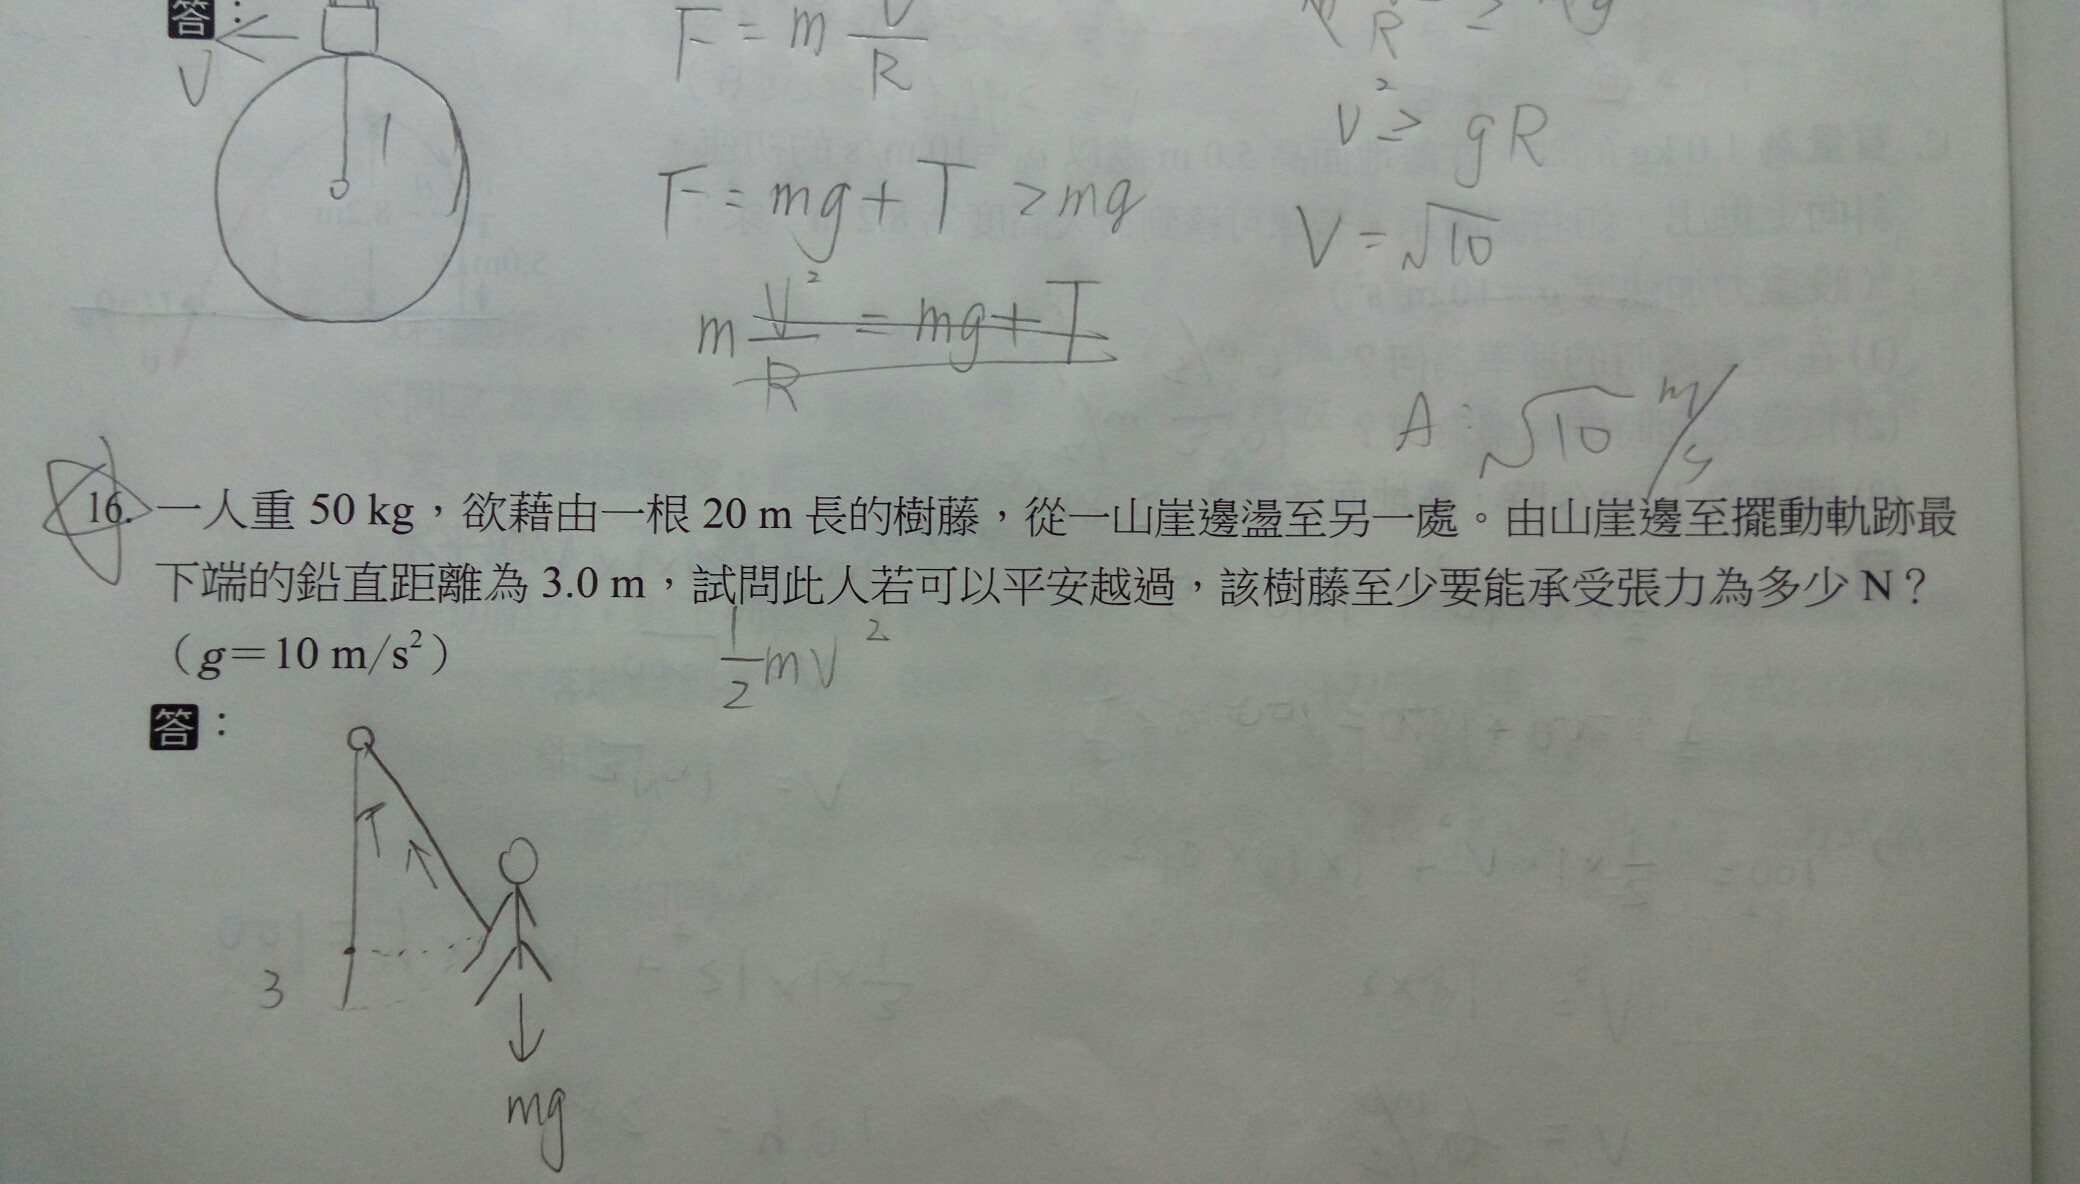 答：
V
1
F = m V/R
R ≥ mg
V² ≥ gR
F = mg + T ≥ mg
V = √10
m V²/R = mg + T
A : √10 m/s
16. 一人重 50 kg，欲藉由一根 20 m 長的樹藤，從一山崖邊盪至另一處。由山崖邊至擺動軌跡最
下端的鉛直距離為 3.0 m，試問此人若可以平安越過，該樹藤至少要能承受張力為多少 N？
（g＝10 m/s²）
1/2 mV²
答：
3
mg